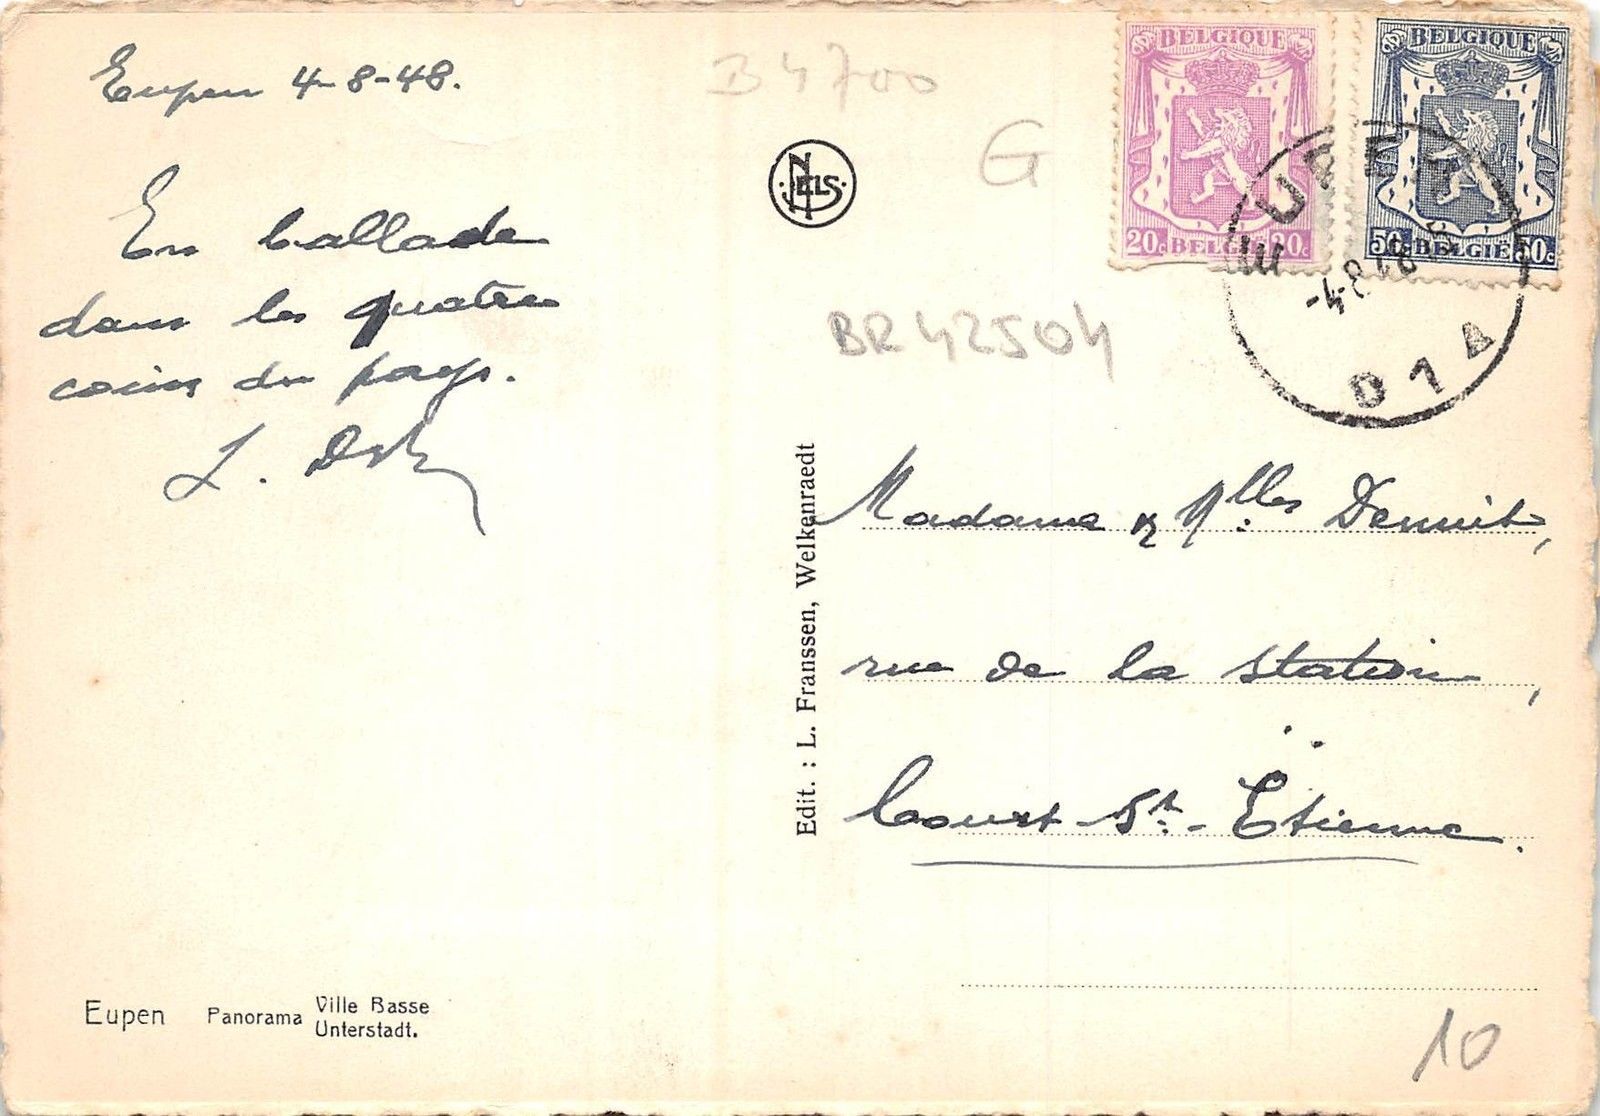 Eupen 4-8-48.
En ballade
dans les quatre
coins du pays.
B4700
G
NELS
BELGIQUE
20c BELGIE 20c
BELGIQUE
50c BELGIE 50c
EUPEN
-4-8-48
D 1 A
BR42504
Edit. : L. Franssen, Welkenraedt
Madame & Mlles Denuit,
rue de la Station,
Court-St-Etienne.
Eupen Panorama Ville Basse
Unterstadt.
10